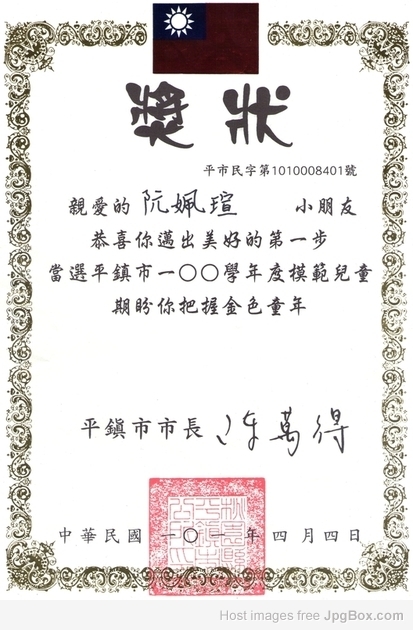 獎狀
平市民字第1010008401號
親愛的 阮姵瑄 小朋友
恭喜你邁出美好的第一步
當選平鎮市一〇〇學年度模範兒童
期盼你把握金色童年
平鎮市市長 陳萬得
中華民國 一〇一 年 四 月 四 日
Host images free JpgBox.com